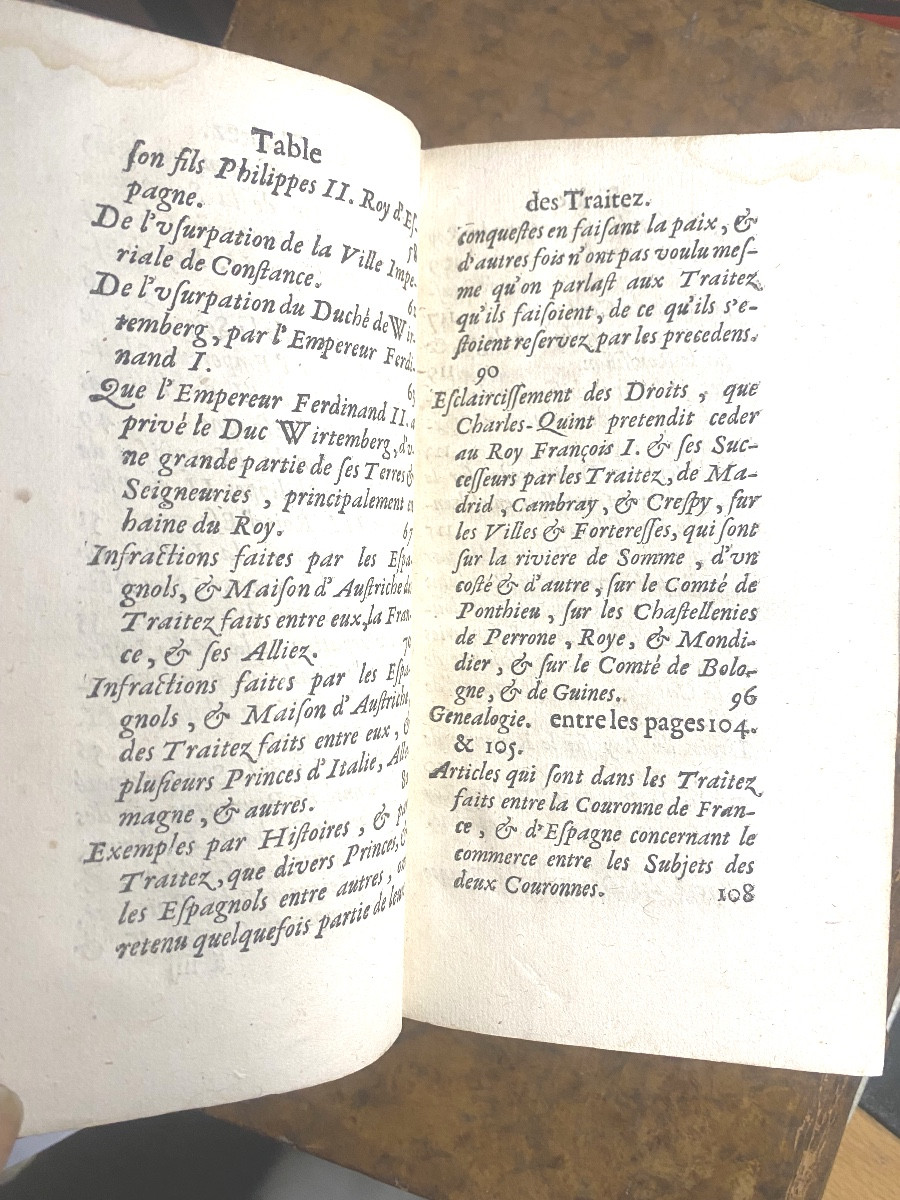 Table
ſon fils Philippes II. Roy d'Eſ-
pagne.
De l'vſurpation de la Ville Impe-
riale de Conſtance.
De l'vſurpation du Duché de Wir-
temberg, par l'Empereur Ferdi-
nand I.
Que l'Empereur Ferdinand II. a
privé le Duc Wirtemberg, d'v-
ne grande partie de ſes Terres &
Seigneuries, principalement en
haine du Roy.
Infractions faites par les Eſpa-
gnols, & Maiſon d'Auſtriche des
Traitez faits entre eux, la Fran-
ce, & ſes Alliez.
Infractions faites par les Eſpa-
gnols, & Maiſon d'Auſtriche,
des Traitez faits entre eux, &
pluſieurs Princes d'Italie, Alle-
magne, & autres.
Exemples par Hiſtoires, & par
Traitez, que divers Princes, &
les Eſpagnols entre autres, ont
retenu quelquefois partie de leurs
des Traitez.
conqueſtes en faiſant la paix, &
d'autres fois n'ont pas voulu meſ-
me qu'on parlaſt aux Traitez
qu'ils faiſoient, de ce qu'ils s'e-
ſtoient reſervez par les precedens.
90
Eſclairciſſement des Droits, que
Charles-Quint pretendit ceder
au Roy François I. & ſes Suc-
ceſſeurs par les Traitez, de Ma-
drid, Cambray, & Creſpy, ſur
les Villes & Fortereſſes, qui ſont
ſur la riviere de Somme, d'vn
coſté & d'autre, ſur le Comté de
Ponthieu, ſur les Chaſtellenies
de Perrone, Roye, & Mondi-
dier, & ſur le Comté de Bolo-
gne, & de Guines. 96
Genealogie. entre les pages 104.
& 105.
Articles qui ſont dans les Traitez
faits entre la Couronne de Fran-
ce, & d'Eſpagne concernant le
commerce entre les Subjets des
deux Couronnes. 108